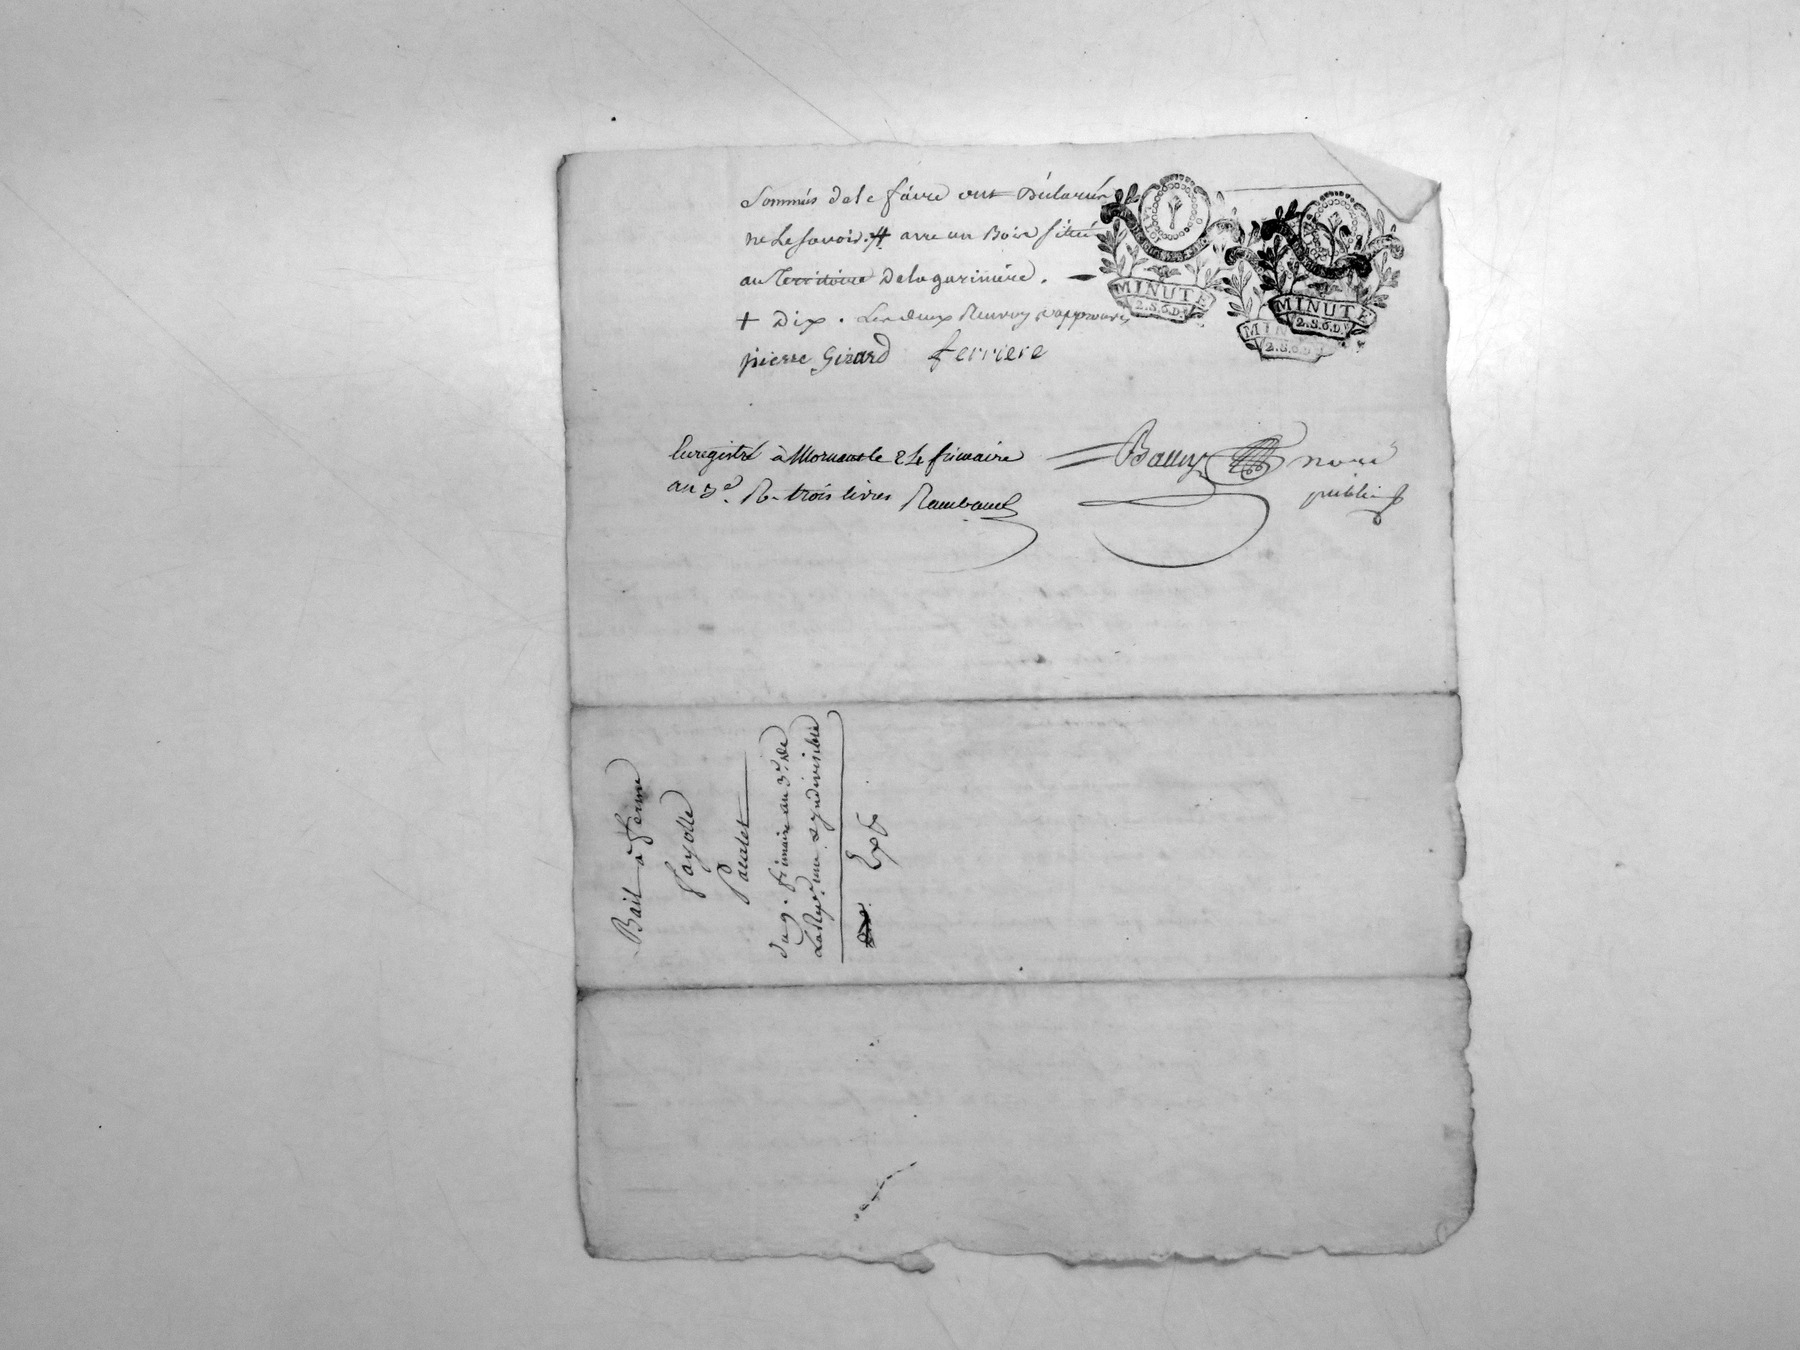 Sommés de le faire ont Déclarés
ne Le savoir. # avec un Bois situé
au Territoire De la garinière. —
+ Dix. Les deux Renvoy approuvés
pierre Girard ferriere
MINUTE
2.S.6.D.
MINUTE
2.S.6.D.
MINUTE
2.S.6.D.
Enregistré à Mornant le 24 frimaire
an 3e. R. trois livres Rambaud
Bauny nore
public
Bail à ferme
Fayolle
Pacalet
Du 9. frimaire an 3e. De
La Repe. une & yndivisible
Expé